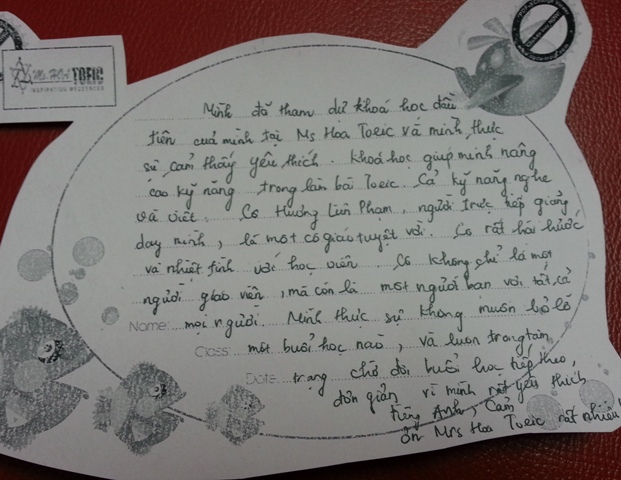 Ms. HOA TOEIC
INSPIRATION MESSENGER
Mình đã tham dự khoá học đầu
tiên cuả mình tại Ms Hoa Toeic và mình thực
sự cảm thấy yêu thích. Khoá học giúp mình nâng
cao kỹ năng trong làm bài Toeic. Cả kỹ năng nghe
và viết. Cô Hương Liên Phạm, người trực tiếp giảng
dạy mình, là một cô giáo tuyệt vời. Cô rất hài hước
và nhiệt tình với học viên. Cô không chỉ là một
người giáo viên, mà còn là một người bạn với tất cả
Name: mọi người. Mình thực sự không muốn bỏ lỡ
Class: một buổi học nào, và luôn trong tâm
Date: trạng chờ đợi buổi học tiếp theo,
đơn giản vì mình rất yêu thích
Tiếng Anh, Cảm
ơn Mrs Hoa Toeic rất nhiều!